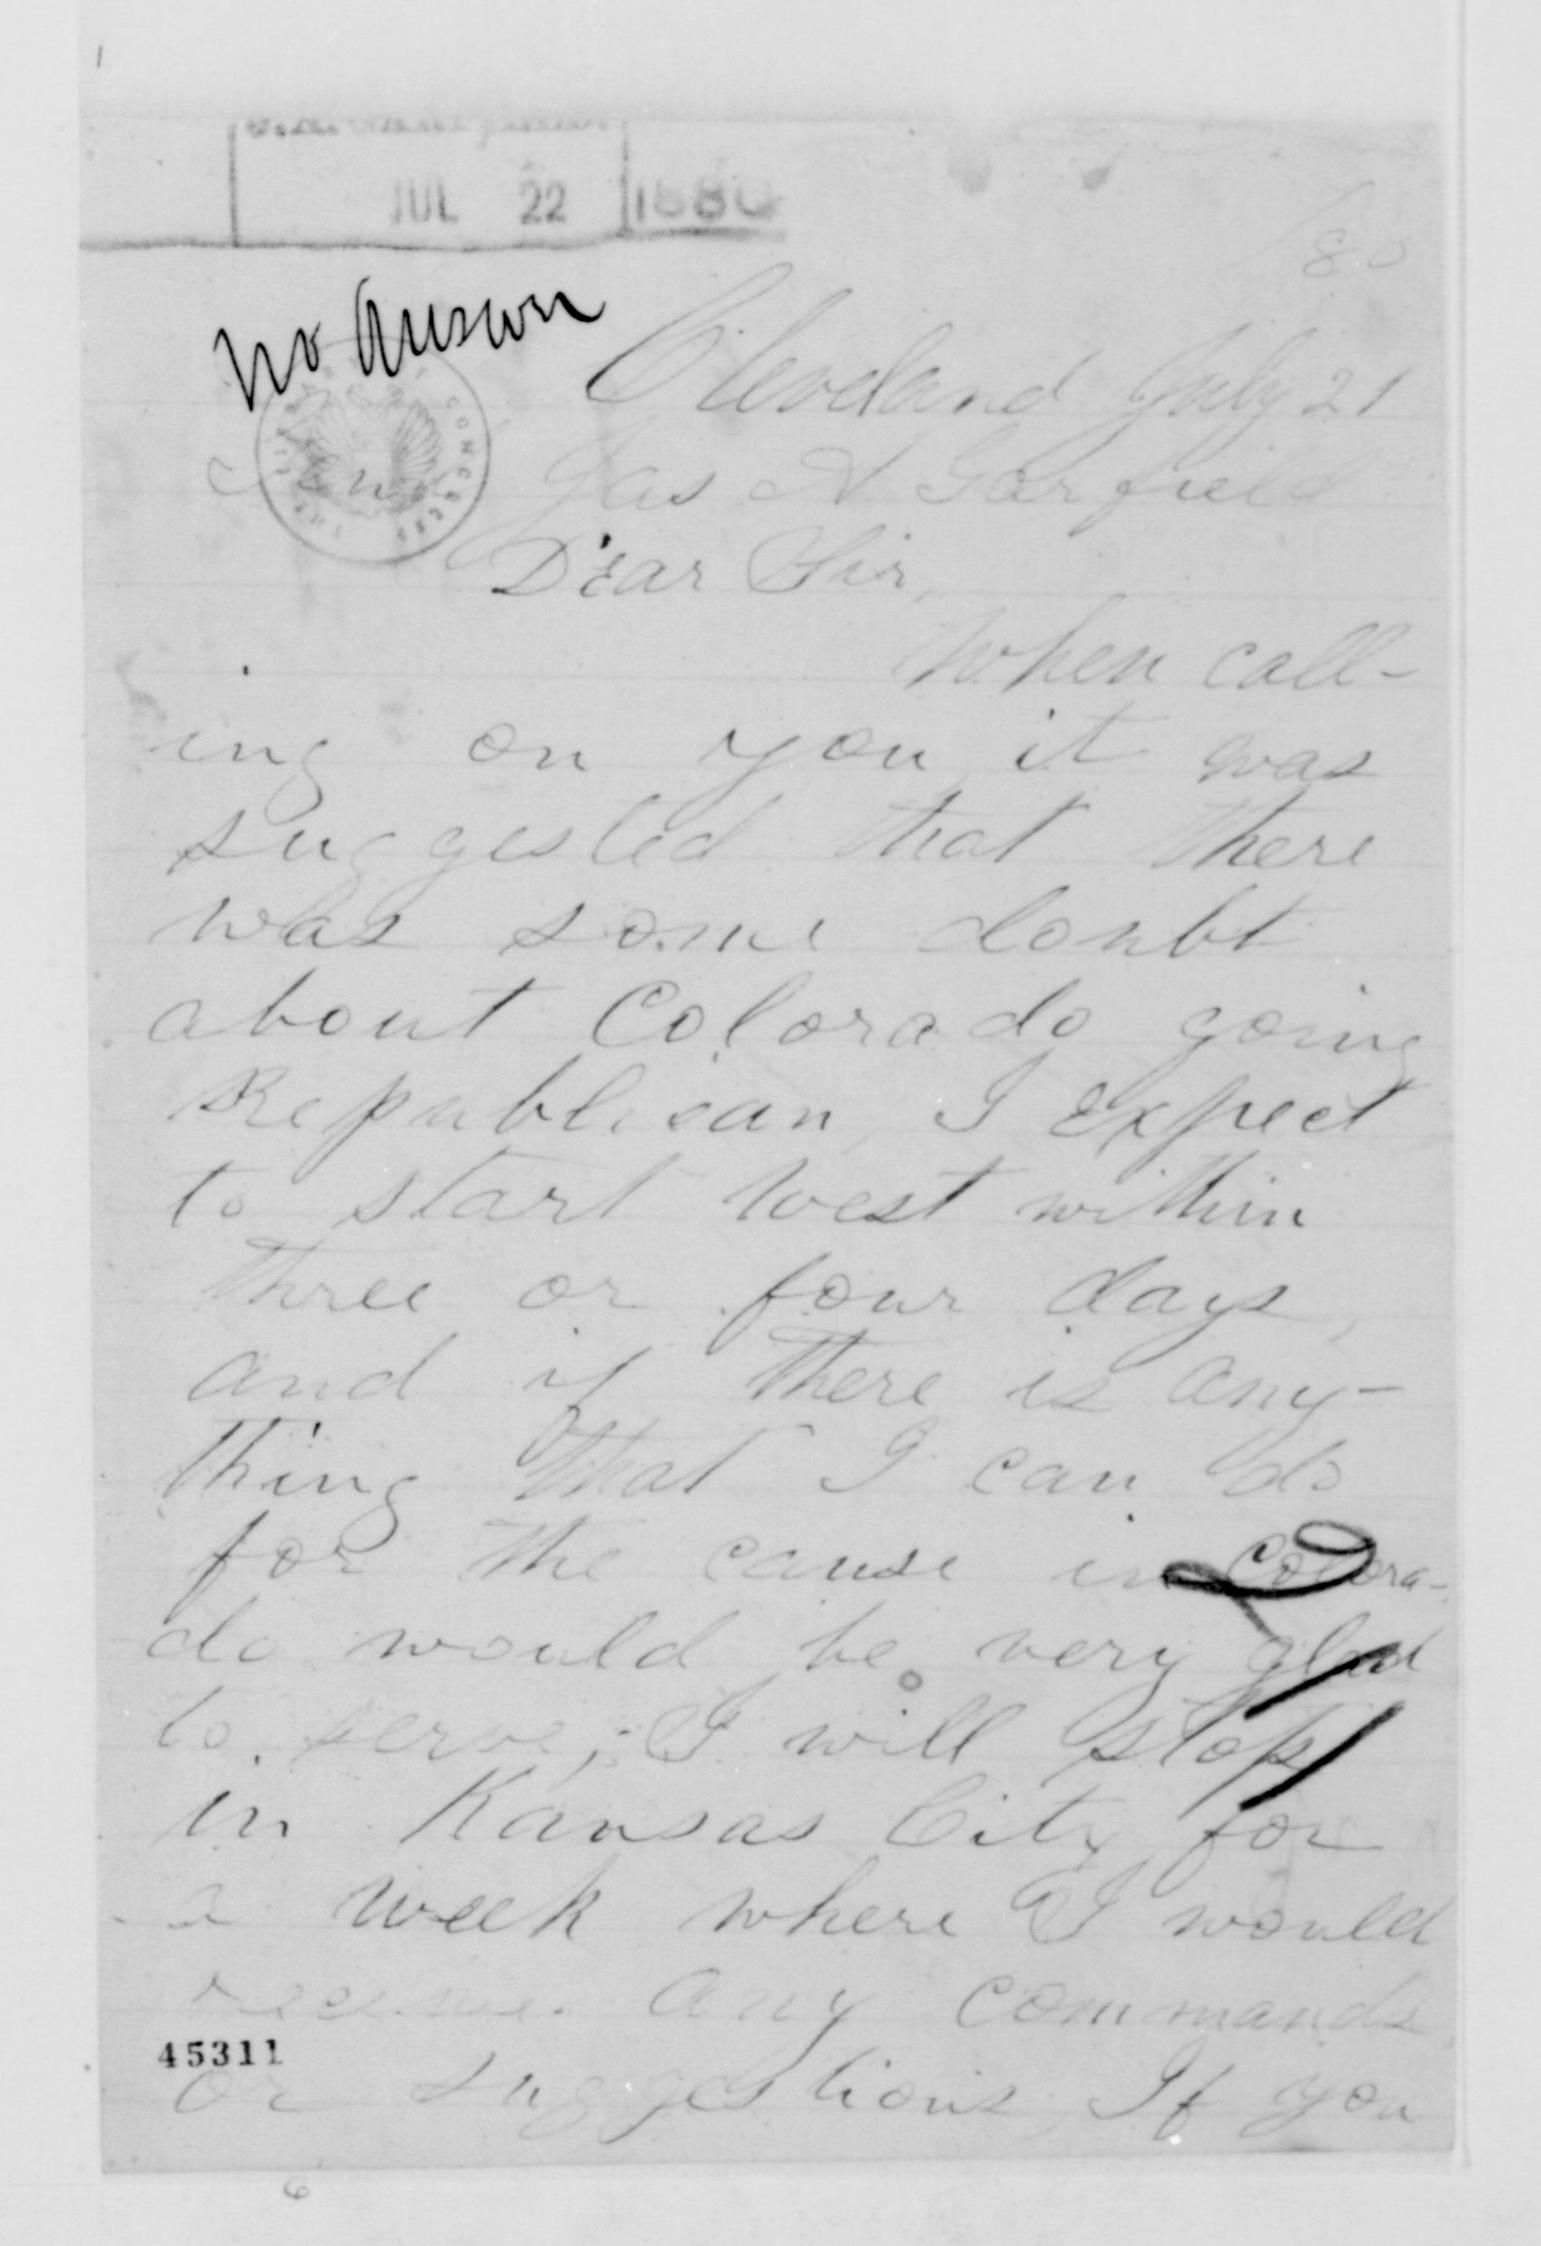 JUL 22 1880
/80
No Answer
Cleveland July 21
Gen Jas A Garfield
Dear Sir,
When call-
ing on you it was
suggested that there
was some doubt
about Colorado going
Republican, I expect
to start West within
three or four days,
and if there is any-
thing that I can do
for the cause in Colora-
do would be very glad
to serve; I will stop
in Kansas City for
a week where I would
receive any commands
45311
or suggestions If you